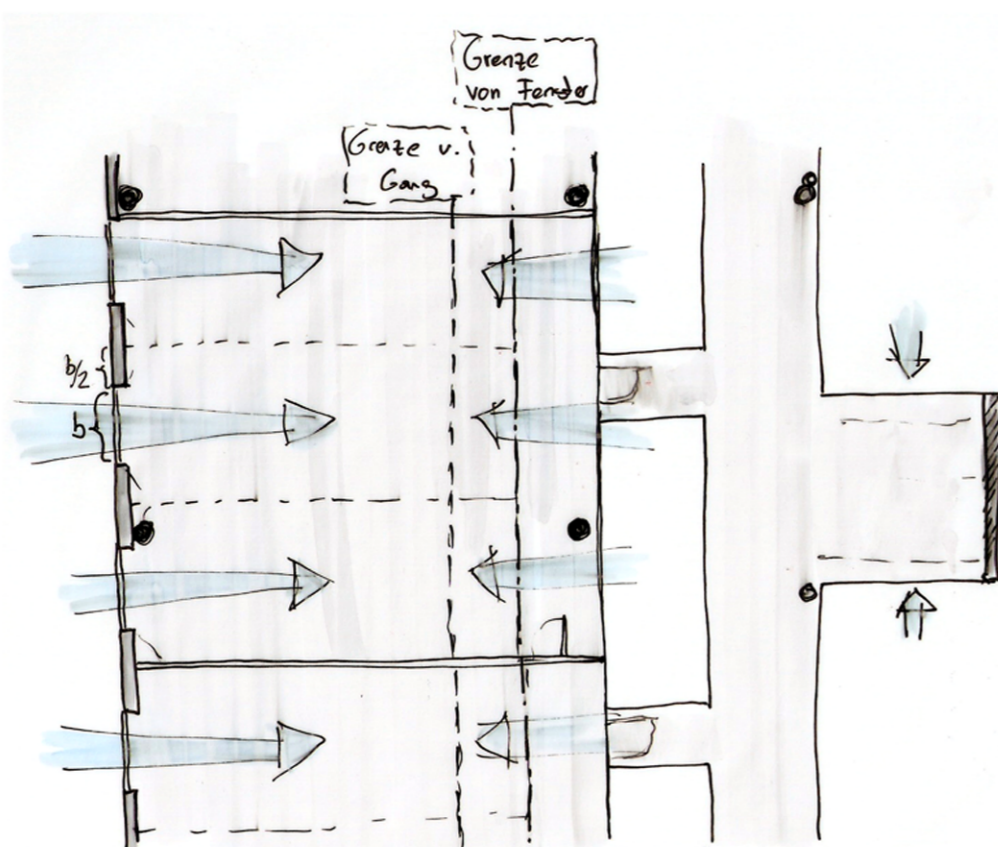 Grenze
von Fenster
Grenze v.
Gang
b/2
b